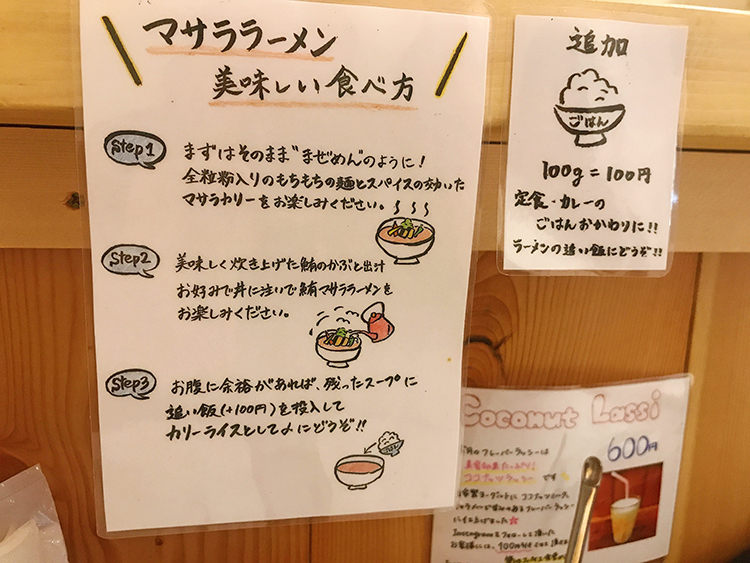 マサララーメン
美味しい食べ方
Step1
まずはそのまま"まぜめん"のように！
全粒粉入りのもちもちの麺とスパイスの効いた
マサラカリーをお楽しみください。
Step2
美味しく炊き上げた鮪のかぶと出汁
お好みで丼に注いで鮪マサララーメンを
お楽しみください。
Step3
お腹に余裕があれば、残ったスープに
追い飯(+100円)を投入して
カリーライスとして♪にどうぞ!!
ごはん
追加
ごはん
100g=100円
定食・カレーの
ごはんおかわりに!!
ラーメンの追い飯にどうぞ!!
Coconut Lassi
600円
のフレーバーラッシーは
ココナッツラッシー です
Instagramをフォローして頂いた
お客様には、100円